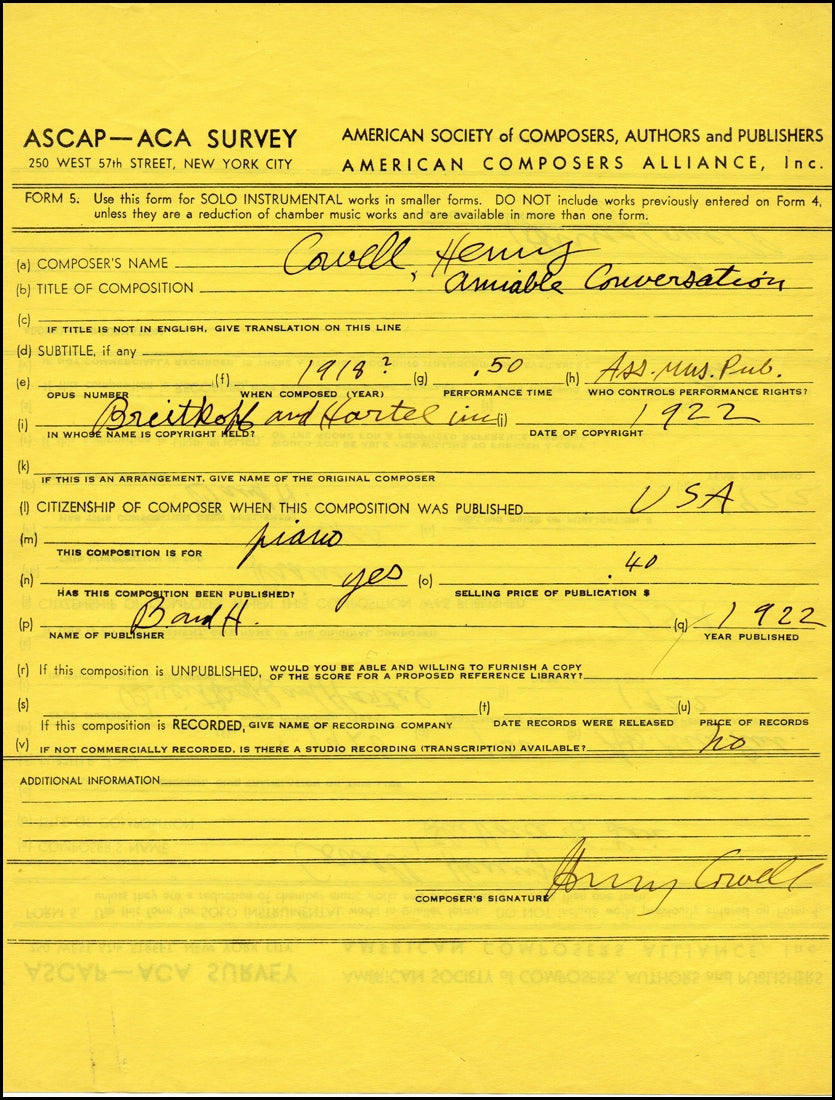 ASCAP—ACA SURVEY AMERICAN SOCIETY of COMPOSERS, AUTHORS and PUBLISHERS
250 WEST 57th STREET, NEW YORK CITY AMERICAN COMPOSERS ALLIANCE, Inc.
FORM 5. Use this form for SOLO INSTRUMENTAL works in smaller forms. DO NOT include works previously entered on Form 4,
unless they are a reduction of chamber music works and are available in more than one form.
(a) COMPOSER'S NAME Cowell, Henry
(b) TITLE OF COMPOSITION Amiable Conversation
(c)
IF TITLE IS NOT IN ENGLISH, GIVE TRANSLATION ON THIS LINE
(d) SUBTITLE, if any
(e) (f) 1918? (g) .50 (h) Ass. Mus. Pub.
OPUS NUMBER WHEN COMPOSED (YEAR) PERFORMANCE TIME WHO CONTROLS PERFORMANCE RIGHTS?
(i) Breitkopf and Hartel inc (j) 1922
IN WHOSE NAME IS COPYRIGHT HELD? DATE OF COPYRIGHT
(k)
IF THIS IS AN ARRANGEMENT, GIVE NAME OF THE ORIGINAL COMPOSER
(l) CITIZENSHIP OF COMPOSER WHEN THIS COMPOSITION WAS PUBLISHED USA
(m) piano
THIS COMPOSITION IS FOR
(n) yes (o) .40
HAS THIS COMPOSITION BEEN PUBLISHED? SELLING PRICE OF PUBLICATION $
(p) B and H. (q) 1922
NAME OF PUBLISHER YEAR PUBLISHED
(r) If this composition is UNPUBLISHED, WOULD YOU BE ABLE AND WILLING TO FURNISH A COPY
OF THE SCORE FOR A PROPOSED REFERENCE LIBRARY?
(s) (t) (u)
If this composition is RECORDED, GIVE NAME OF RECORDING COMPANY DATE RECORDS WERE RELEASED PRICE OF RECORDS
(v) IF NOT COMMERCIALLY RECORDED, IS THERE A STUDIO RECORDING (TRANSCRIPTION) AVAILABLE? no
ADDITIONAL INFORMATION
COMPOSER'S SIGNATURE Henry Cowell